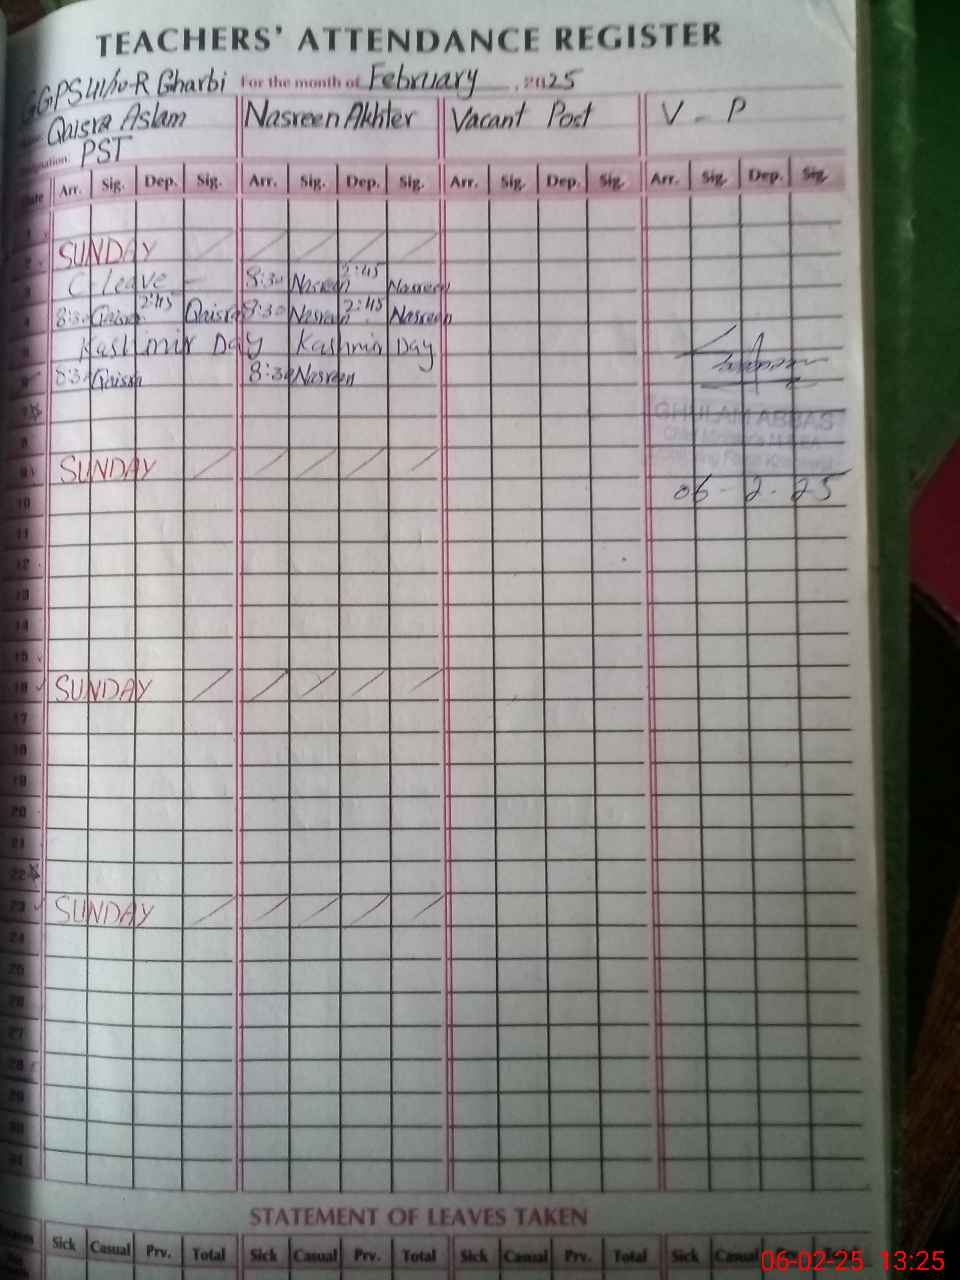 TEACHERS' ATTENDANCE REGISTER
GGPS 41/10-R Gharbi For the month of February, 2025
Qaisra Aslam Nasreen Akhter Vacant Post V - P
PST
Arr. Sig. Dep. Sig. Arr. Sig. Dep. Sig. Arr. Sig. Dep. Sig. Arr. Sig. Dep. Sig.
1
2 SUNDAY
3 C-Leave - 8:30 Nasreen 2:45 Nasreen
4 8:30 Qaisra 2:45 Qaisra 8:30 Nasreen 2:45 Nasreen
5 Kashmir Day Kashmir Day
6 8:30 Qaisra 8:30 Nasreen
7
GHULAM ABBAS
8
9 SUNDAY
10 06-2-25
11
12
13
14
15
16 SUNDAY
17
18
19
20
21
22
23 SUNDAY
24
25
26
27
28
29
30
31
STATEMENT OF LEAVES TAKEN
Sick Casual Prv. Total Sick Casual Prv. Total Sick Casual Prv. Total Sick
06-02-25 13:25